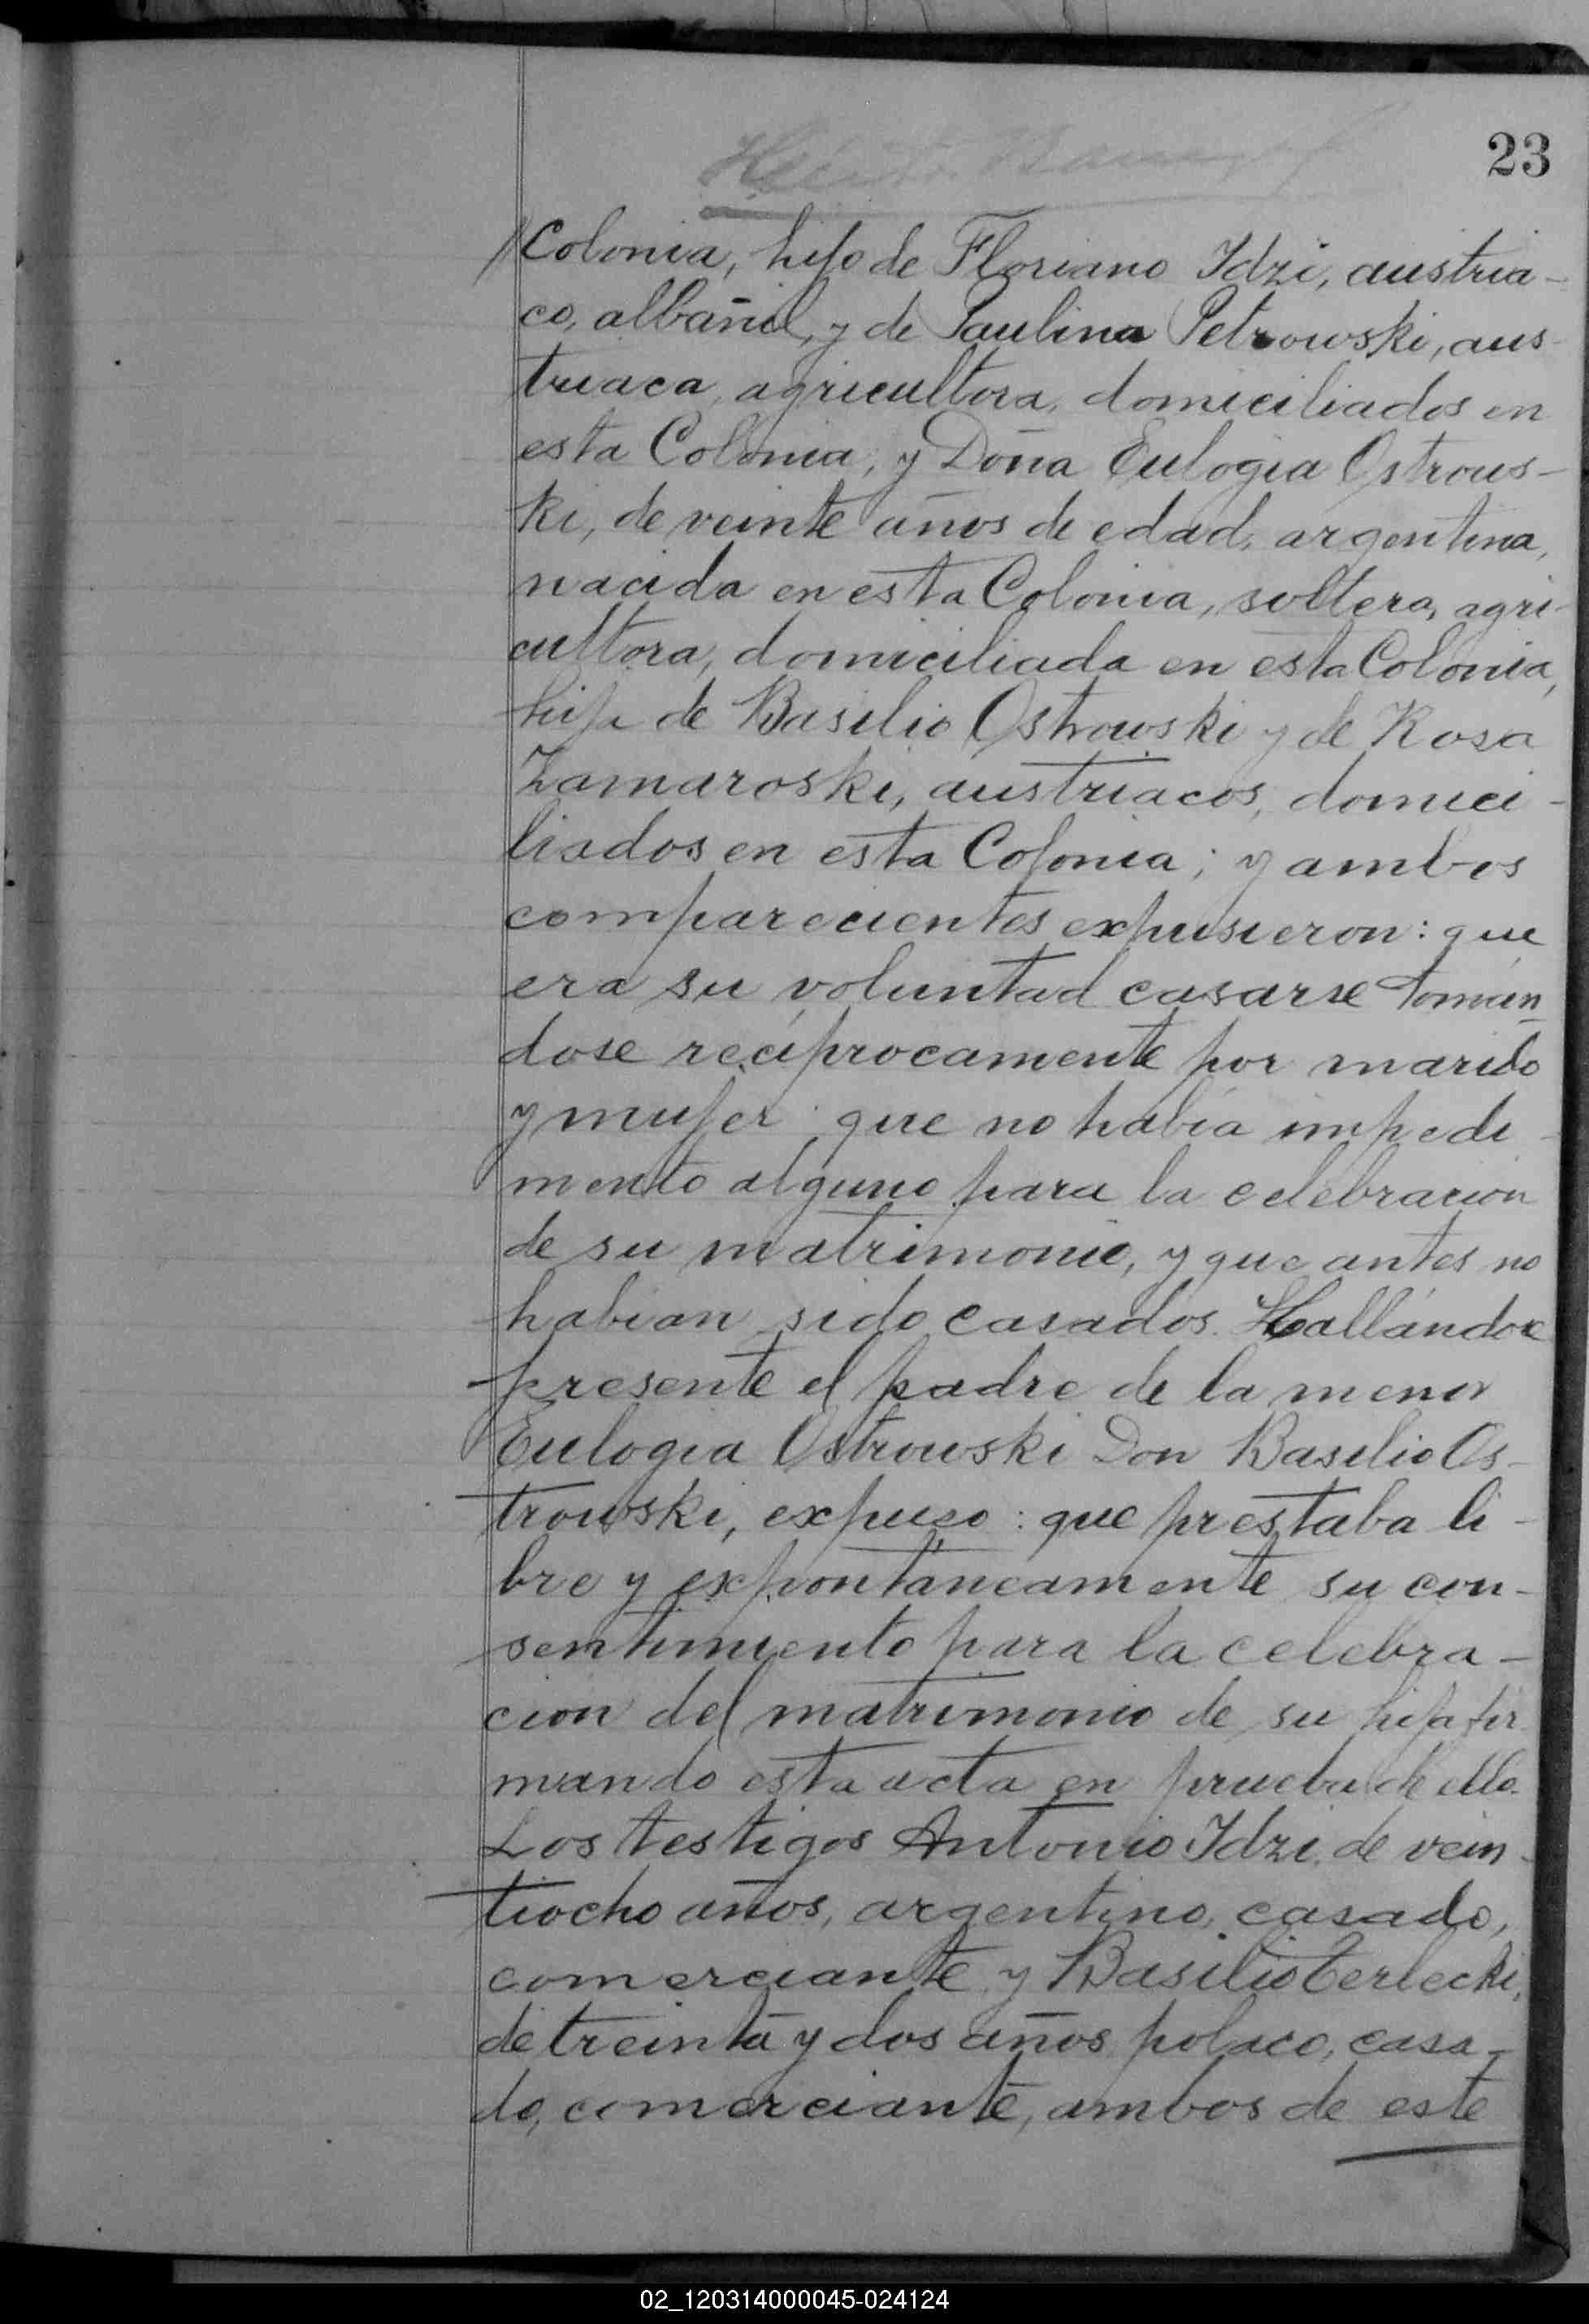 23
Colonia, hijo de Floriano Idzi, austria-
co, albañil, y de Paulina Petrowski, aus-
triaca, agricultora, domiciliados en
esta Colonia, y Doña Eulogia Ostrows-
ki, de veinte años de edad, argentina,
nacida en esta Colonia, soltera, agri-
cultora, domiciliada en esta Colonia,
hija de Basilio Ostrowski y de Rosa
Zamaroski, austriacos, domici-
liados en esta Colonia; y ambos
comparecientes expusieron: que
era su voluntad casarse tomán
dose recíprocamente por marido
y mujer: que no había impedi-
mento alguno para la celebracion
de su matrimonio, y que antes no
habían sido casados. Hallándose
presente el padre de la menor
Eulogia Ostrowski Don Basilio Os-
trowski, expuso: que prestaba li-
bre y expontáneamente su con-
sentimiento para la celebra-
cion del matrimonio de su hija fir
mando esta acta en prueba de ello.
Los testigos Antonio Idzi, de vein-
tiocho años, argentino, casado,
comerciante y Basilio Terlecki,
de treinta y dos años, polaco, casa-
do, comerciante, ambos de este
02_120314000045-024124